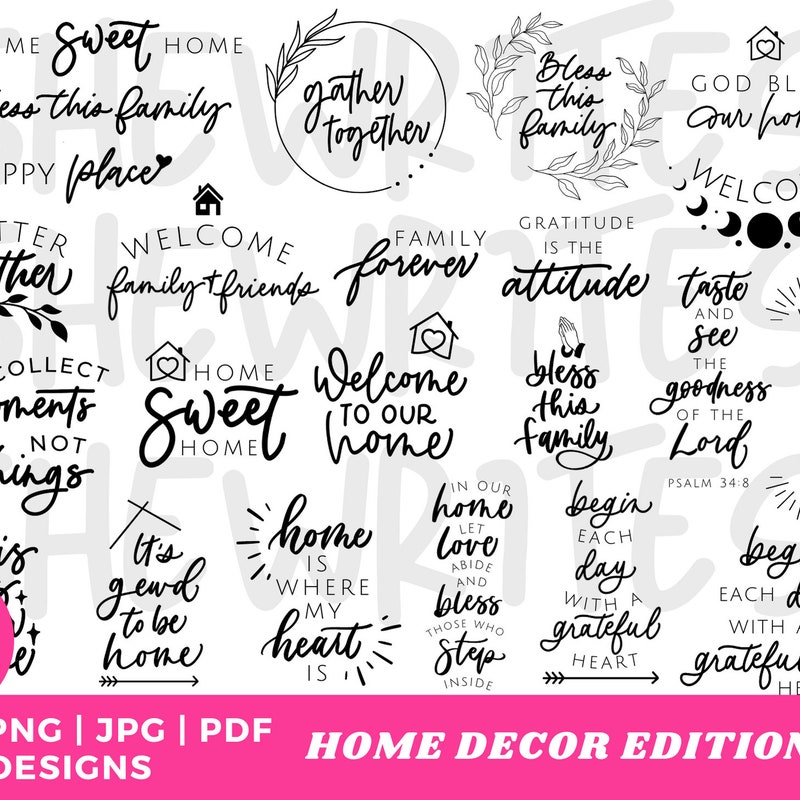 OME sweet HOME
ess this family
PPY place
gather
together
Bless
this
family
GOD BL
our hom
WELCO
TTER
ther
WELCOME
family + friends
FAMILY
forever
GRATITUDE
IS THE
attitude
taste
AND
see
THE
goodness
OF THE
Lord
PSALM 34:8
COLLECT
oments
NOT
hings
HOME
Sweet
HOME
Welcome
TO OUR
home
bless
this
family
is
It's
gewd
to be
home
home
IS
WHERE
MY
heart
IS
IN OUR
home
LET
love
ABIDE
AND
bless
THOSE WHO
Step
INSIDE
begin
EACH
day
WITH A
grateful
HEART
beg
EACH d
WITH A
grateful
HE
PNG | JPG | PDF
DESIGNS
HOME DECOR EDITION
SHEWRITES
SHEWRITES
SHEWRITES
SHEWRITES